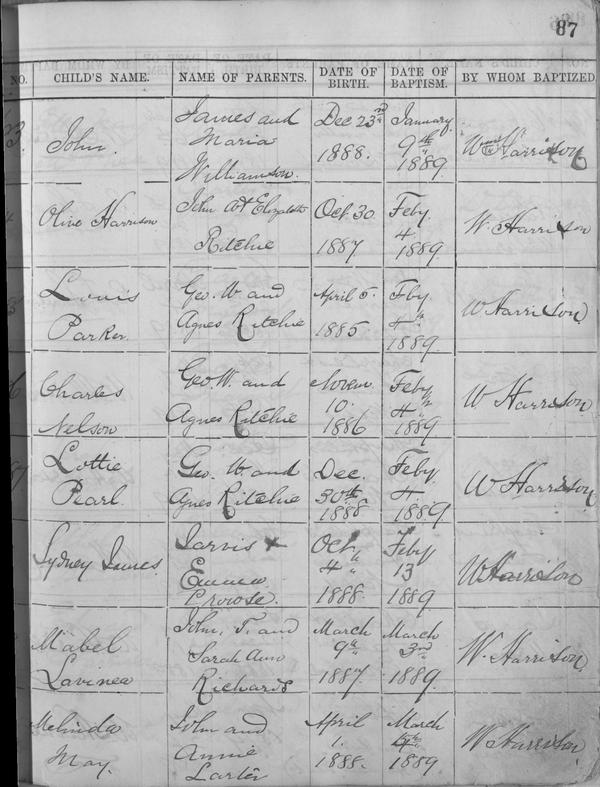 87
NO. CHILD'S NAME. NAME OF PARENTS. DATE OF BIRTH. DATE OF BAPTISM. BY WHOM BAPTIZED
John. James and Maria Williamson. Dec 23rd 1888. January 9th 1889. Wm Harrison
Olive Harrison John W & Elizabeth Ritchie Oct. 30 1887 Feby 4 1889. W. Harrison
Louis Parker. Geo. W and Agnes Ritchie April 5. 1885. Fby 4th 1889. W Harrison
Charles Nelson Geo. W. and Agnes Ritchie Novem 10. 1886 Feby 4th 1889. W Harrison
Lottie Pearl. Geo. W. and Agnes Ritchie Dec. 30th 1888 Feby 4 1889. W Harrison
Sydney James. Jarvis & Emma Crowse. Oct 4th 1888. Feby 13 1889 W Harrison
Mabel Lavinea John, T. and Sarah Ann Richards March 9th 1887. March 3rd 1889. W. Harrison
Melinda May. John and Annie Larter April 1. 1888. March 1889 W Harrison